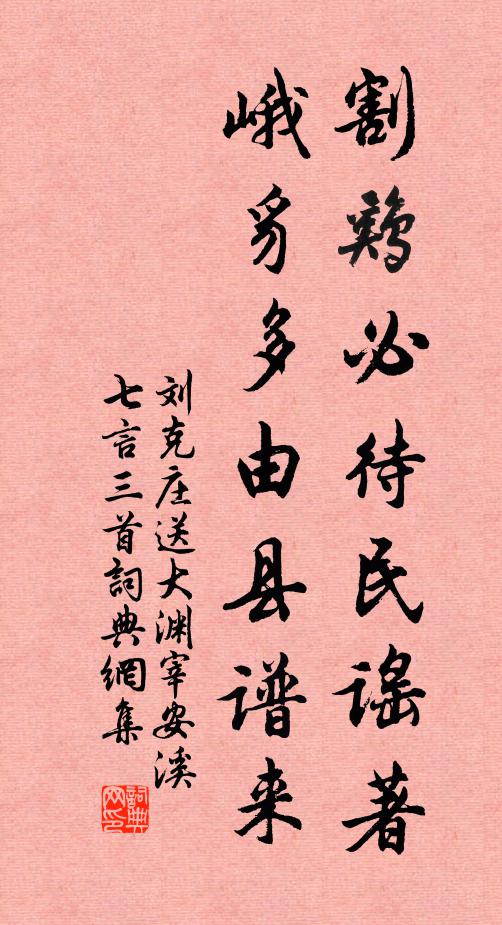 割鷄必待民謡著
峨豸多由县谱来
刘克庄送大渊宰安溪
七言三首詞典網集
詞典
网印